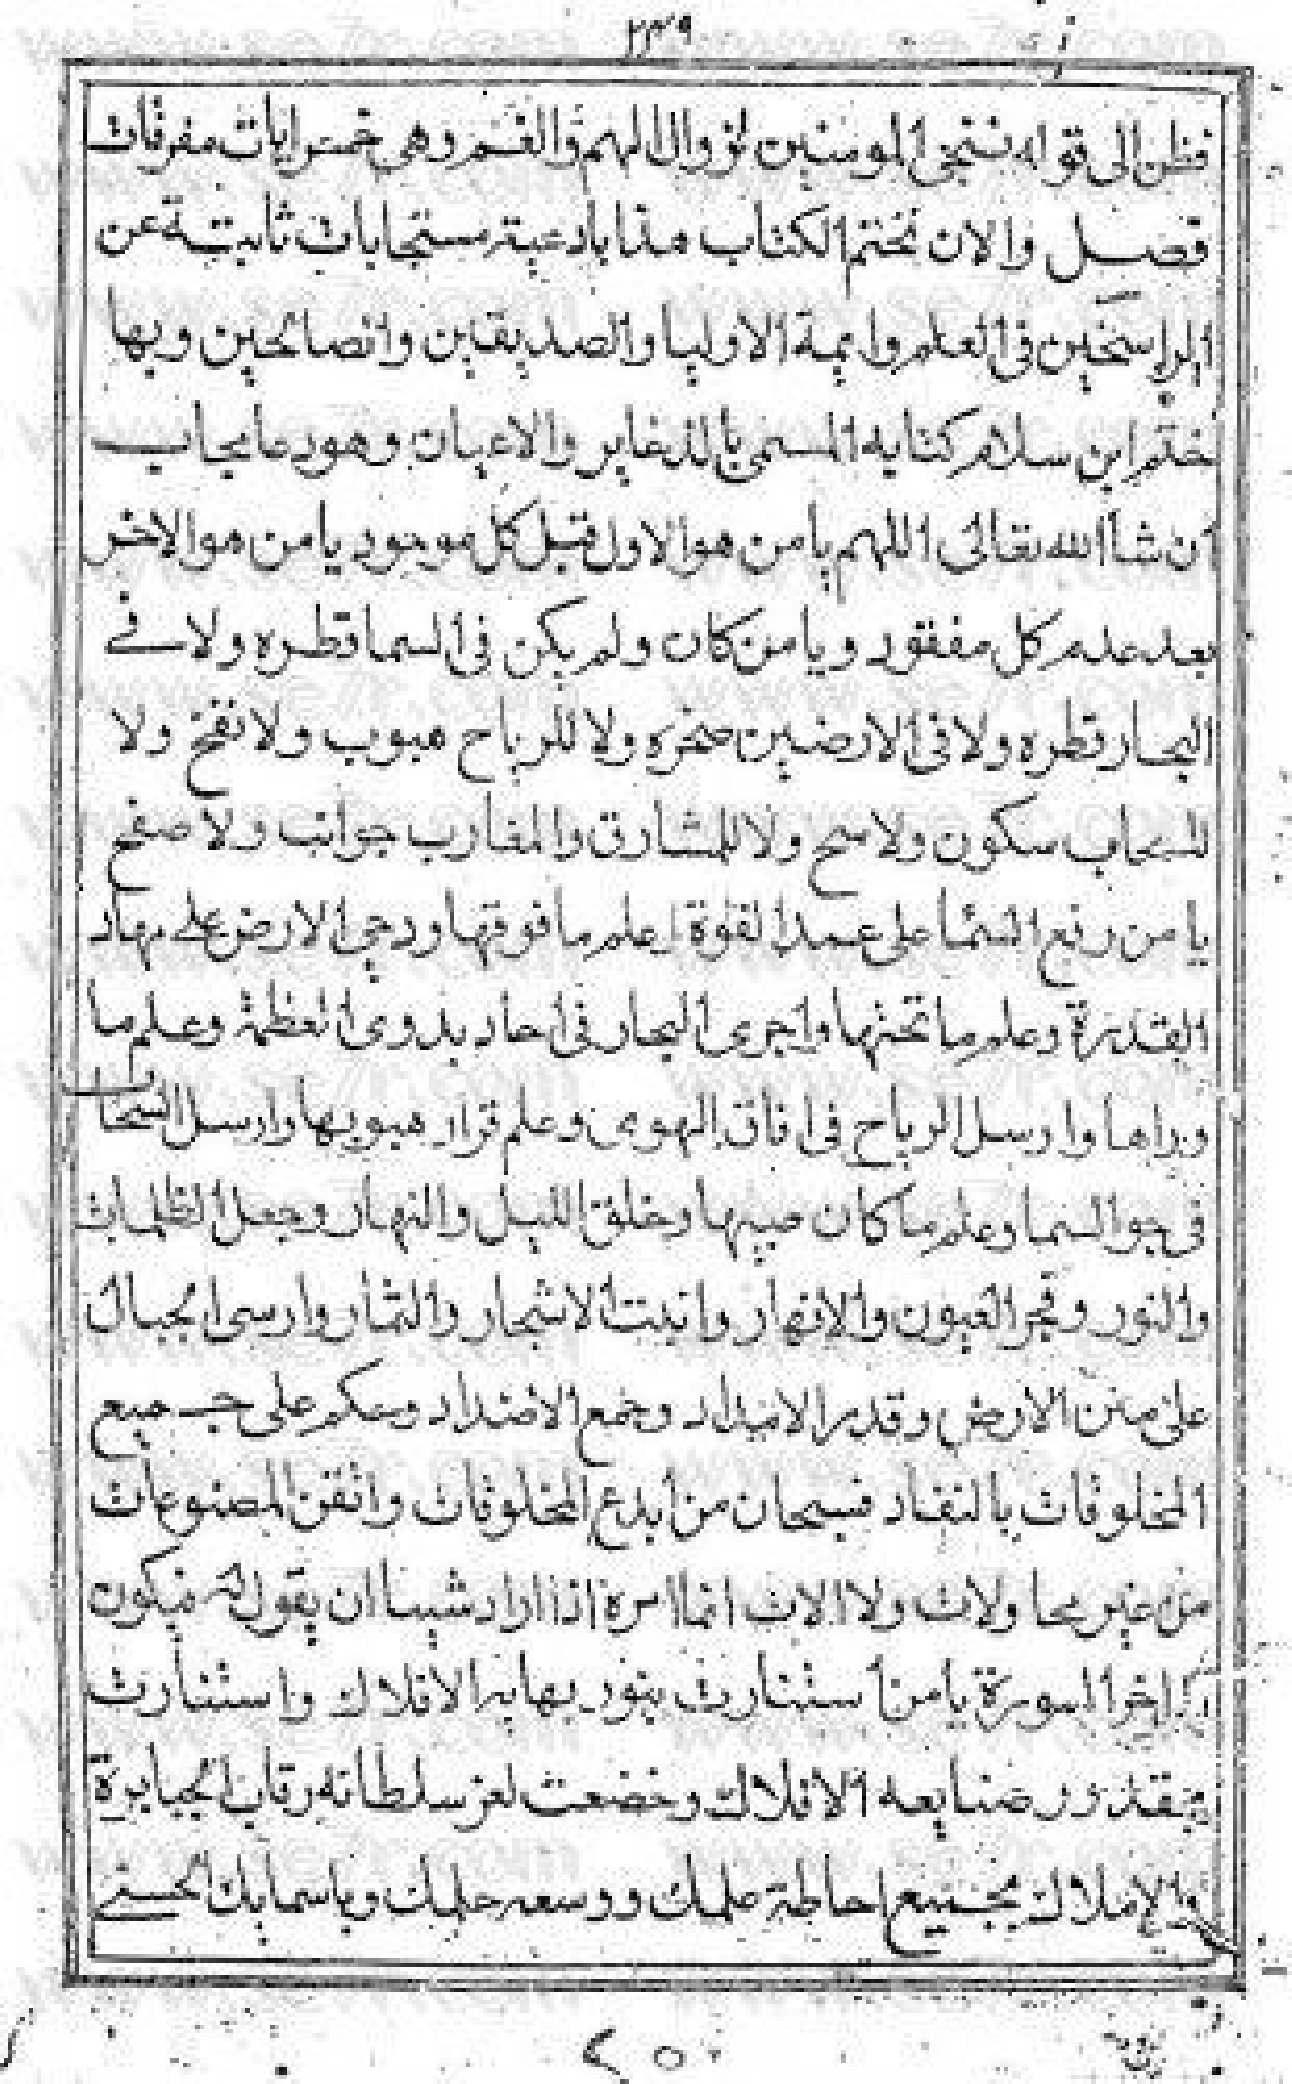 ٢٣٩
فظن الى قوله ننجى المومنين لزوال الهم والغم وهى خمس ايات مفرقات
فصل والان نختم الكتاب هذا بادعية مستجابات ثابتة عن
الراسخين فى العلم وايمة الاوليا والصديقين والصالحين وبها
ختم ابن سلام كتابه المسمى بالذخاير والاعيان وهو دعا يجاب
ان شا الله تعالى اللهم يا من هو الاول قبل كل موجود يا من هو الاخر
بعد عدم كل مفقود ويا من كان ولم يكن فى السما قطره ولا فے
البحار قطره ولا فى الارضين صخره ولا للرياح هبوب ولا نفخ ولا
للسحاب سكون ولا سح ولا للمشارق والمغارب جوانب ولا صفح
يا من رفع السما على عمد القوة وعلم ما فوقها ودحى الارض على مهاد
القدرة وعلم ما تحتها واجرى البحار فى احاديد وى العظمة وعلم ما
وراها وارسل الرياح فى افاق الهوى وعلم قرار هبوبها وارسل السحاب
فى جو السما وعلم ما كان صيبها وخلق الليل والنهار وجعل الظلمات
والنور وفجر العيون والانهار وانبت الاشجار والثمار وارسى الجبال
على متن الارض وقدر الامداد وجمع الاضداد وحكم على جميع
المخلوقات بالنفاد فسبحان من ابدع المخلوقات واتقن المصنوعات
من غير محاولات ولا الات انما امره اذا اراد شيا ان يقول له فيكون
اخر السورة يا من استنارت بنور بهايه الافلاك واستنارت
بقدر صنايعه الافلاك وخضعت لعز سلطانه رقاب الجبابرة
والاملاك بجميع احاطة علمك ووسعه حلمك وباسمايك الحسنى
٢٥٠